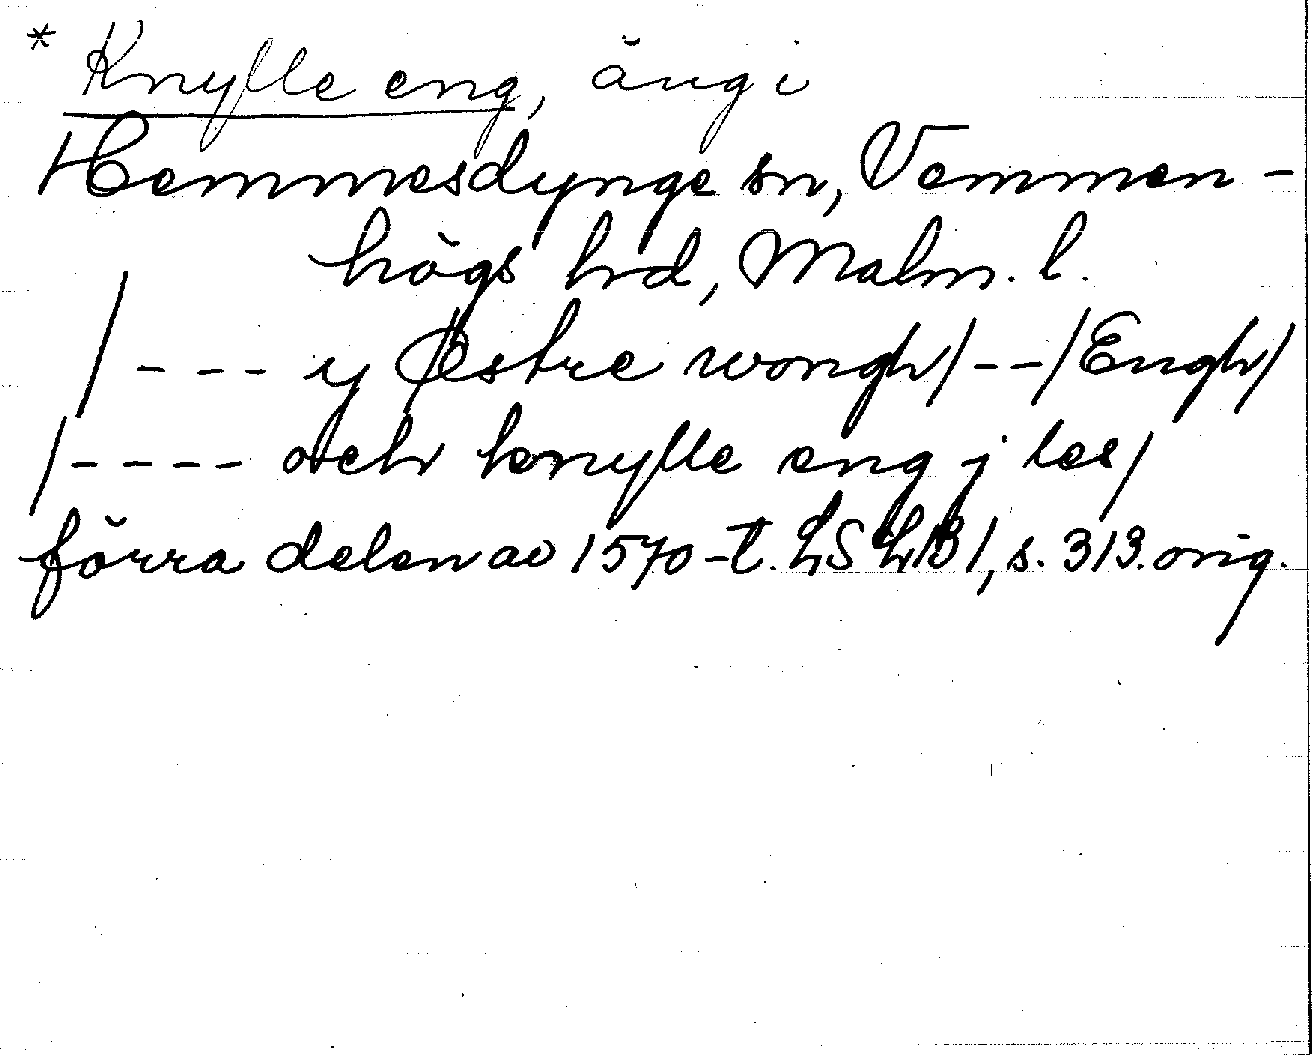 * Knylle eng, äng i
Hemmesdynge sn, Vemmen-
högs hrd, Malm. l.
/ - - - y Østre wongh/ - - /Engh/
/ - - - - och knylle eng j les/
förra delen av 1570-t. LSLB1, s. 313. orig.